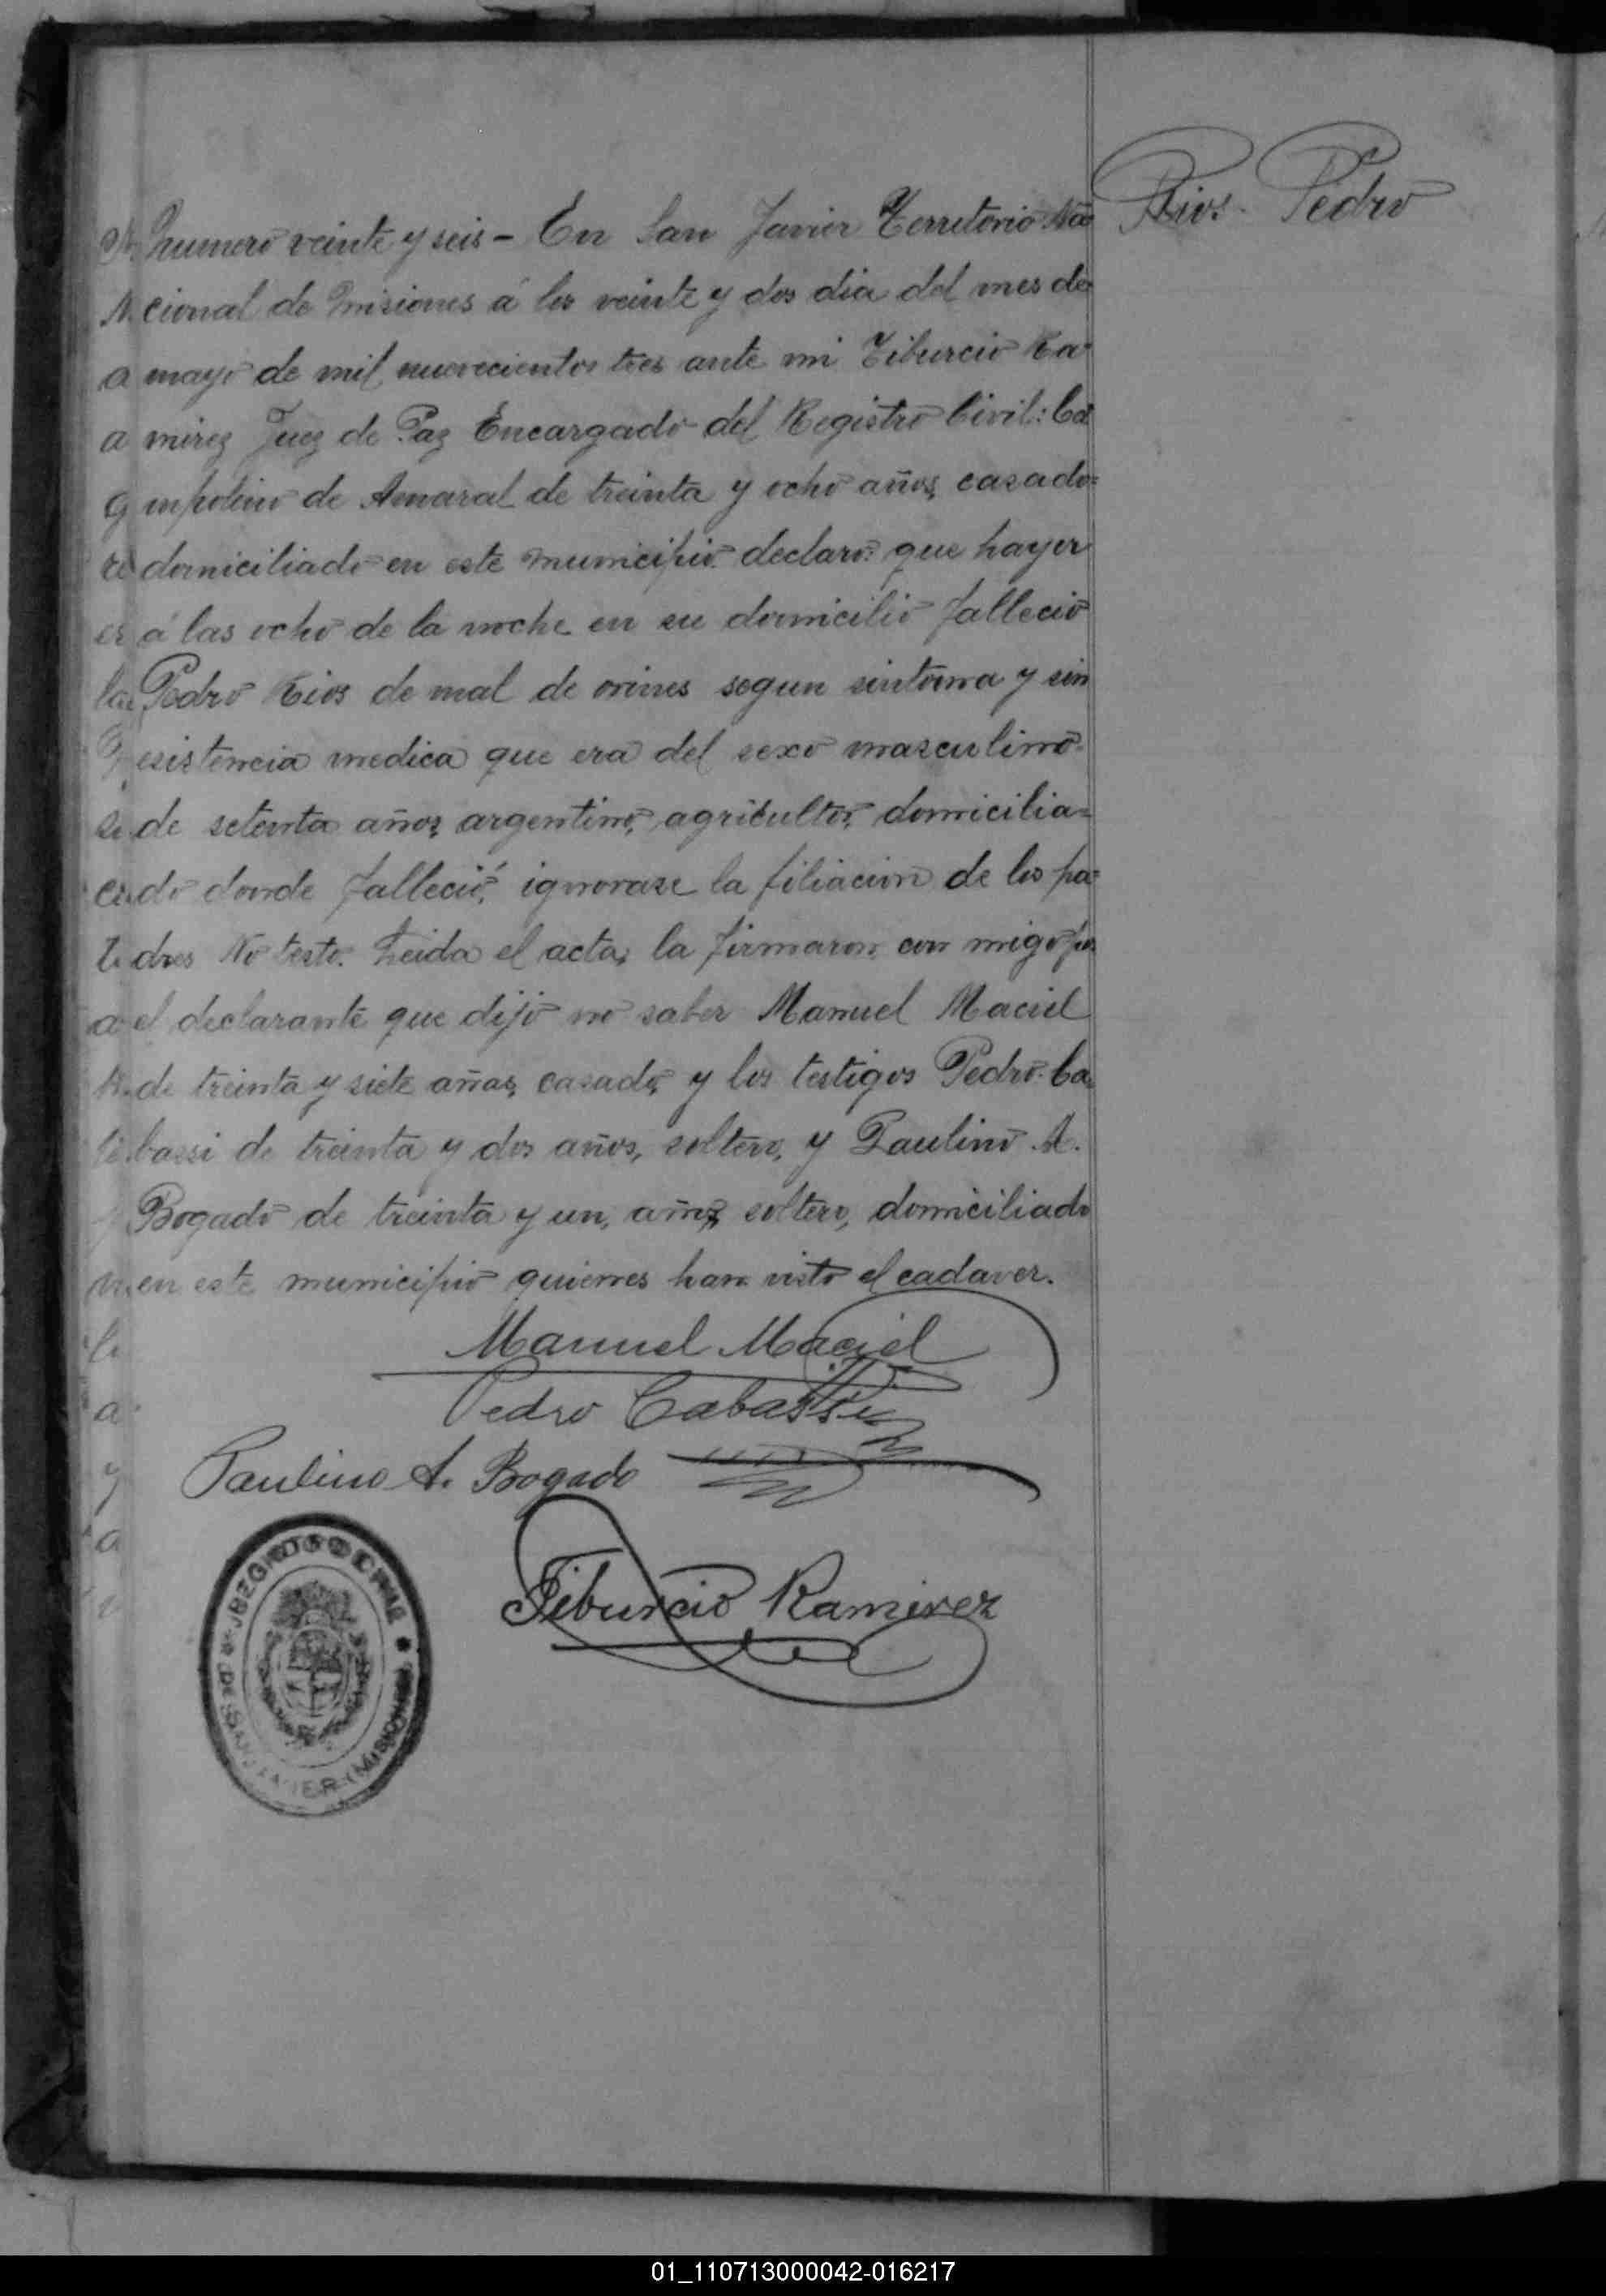 Rios. Pedro
numero veinte y seis - En San Javier Territorio Na
cional de misiones á los veinte y dos dia del mes de
mayo de mil nuevecientos tres ante mi Tiburcio Ra
mirez Juez de Paz Encargado del Registro Civil: Ca
mpolino de Amaral de treinta y ocho años, casado
domiciliado en este municipio declaro: que hayer
á las ocho de la noche en su domicilio fallecio
Pedro Rios de mal de orines segun sintoma y sin
esistencia medica que era del sexo masculino
de setenta años, argentino, agricultor, domicilia=
do donde falleció, ignorase la filiacion de los pa=
dres No testo. Leida el acta, la firmaron con migo por
el declarante que dijo no saber Manuel Maciel
de treinta y siete años, casado, y los testigos Pedro Ca
bassi de treinta y dos años, soltero, y Paulino A.
Bogado de treinta y un, años, soltero, domiciliado
en este municipio quienes han visto el cadaver.
Manuel Maciel
Pedro Cabassi
Paulino A. Bogado
Tiburcio Ramirez
(MISIONES)
01_110713000042-016217